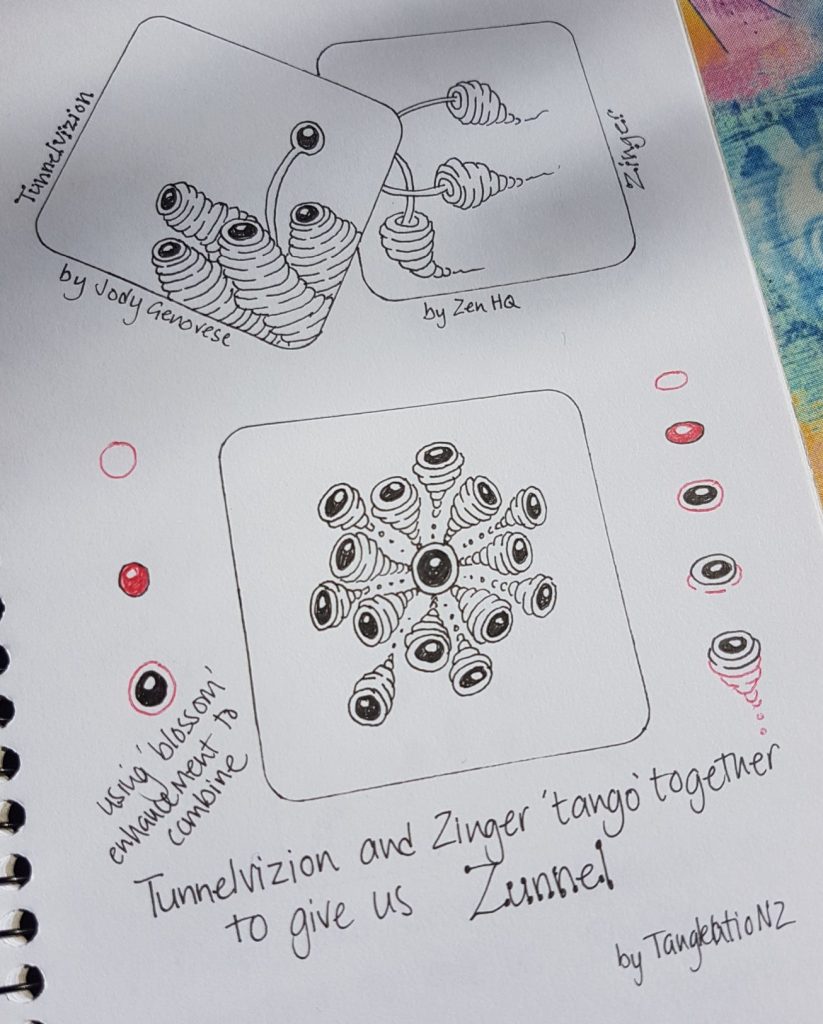 Tunnelvizion
by Jody Genovese
Zinger
by Zen HQ
using 'blossom'
enhancement to
combine
Tunnelvizion and Zinger 'tango' together
to give us Zunnel
by